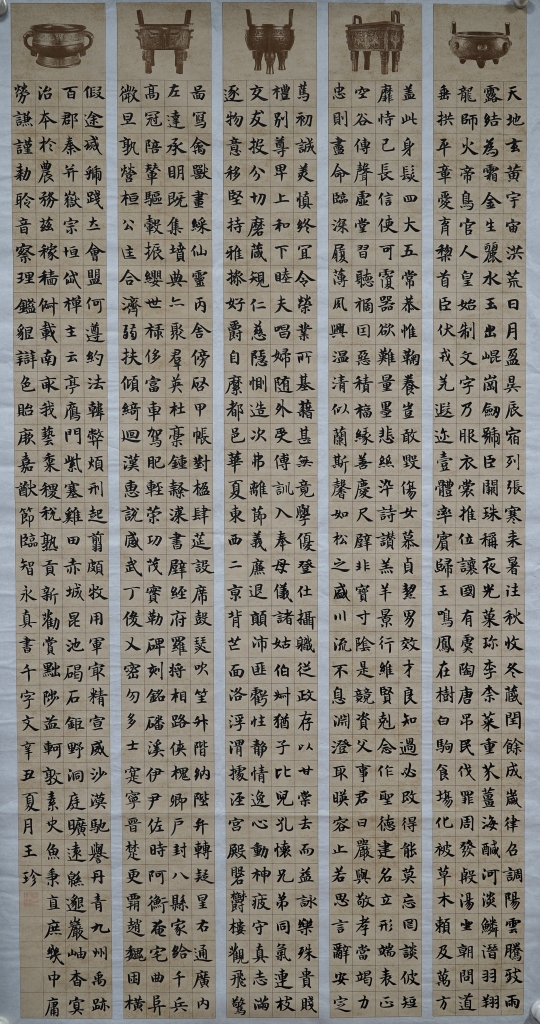 天地玄黃宇宙洪荒日月盈昃辰宿列張寒來暑往秋收冬藏閏餘成歲律召調陽雲騰致雨
露結為霜金生麗水玉出崐崗劒號巨闕珠稱夜光菓珍李柰菜重芥薑海醎河淡鱗潛羽翔
龍師火帝鳥官人皇始制文字乃服衣裳推位讓國有虞陶唐弔民伐罪周發殷湯坐朝問道
垂拱平章愛育黎首臣伏戎羌遐邇壹體率賓歸王鳴鳳在樹白駒食場化被草木賴及萬方
蓋此身髮四大五常恭惟鞠養豈敢毀傷女慕貞絜男效才良知過必改得能莫忘罔談彼短
靡恃己長信使可覆器欲難量墨悲絲染詩讚羔羊景行維賢剋念作聖德建名立形端表正
空谷傳聲虛堂習聽禍因惡積福緣善慶尺璧非寶寸陰是競資父事君曰嚴與敬孝當竭力
忠則盡命臨深履薄夙興溫清似蘭斯馨如松之盛川流不息淵澄取暎容止若思言辭安定
篤初誠美慎終宜令榮業所基藉甚無竟學優登仕攝職從政存以甘棠去而益詠樂殊貴賤
禮別尊卑上和下睦夫唱婦隨外受傅訓入奉母儀諸姑伯叔猶子比兒孔懷兄弟同氣連枝
交友投分切磨箴規仁慈隱惻造次弗離節義廉退顛沛匪虧性靜情逸心動神疲守真志滿
逐物意移堅持雅操好爵自縻都邑華夏東西二京背芒面洛浮渭據涇宮殿磐鬱樓觀飛驚
圖寫禽獸畫綵仙靈丙舍傍啟甲帳對楹肆筵設席鼓瑟吹笙升階納陛弁轉疑星右通廣內
左達承明既集墳典亦聚群英杜稾鍾隸漆書壁經府羅將相路俠槐卿戶封八縣家給千兵
高冠陪輦驅轂振纓世祿侈富車駕肥輕策功茂實勒碑刻銘磻溪伊尹佐時阿衡奄宅曲阜
微旦孰營桓公匡合濟弱扶傾綺迴漢惠說感武丁俊乂密勿多士寔寧晉楚更霸趙魏困橫
假途滅虢踐土會盟何遵約法韓弊煩刑起翦頗牧用軍最精宣威沙漠馳譽丹青九州禹跡
百郡秦并嶽宗恒岱禪主云亭鴈門紫塞雞田赤城昆池碣石鉅野洞庭曠遠緜邈巖岫杳冥
治本於農務茲稼穡俶載南畝我藝黍稷稅熟貢新勸賞黜陟孟軻敦素史魚秉直庶幾中庸
勞謙謹勑聆音察理鑑貌辯色貽厥嘉猷節臨智永真書千字文辛丑夏月王珍